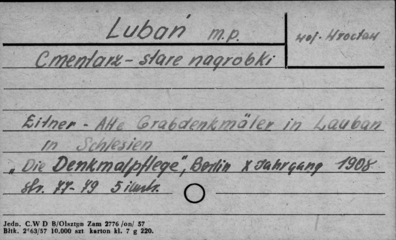 Lubań m.p.
woj. Wrocław
Cmentarz - stare nagrobki
Eitner - Alte Grabdenkmäler in Lauban
in Schlesien
"Die Denkmalpflege", Berlin X Jahrgang 1908
str. 77-79 5 ilustr.
Jedn. C.W D B/Olsztyn Zam 2776 /on/ 57
Bltk. 2°63/57 10.000 szt karton kl. 7 g 220.